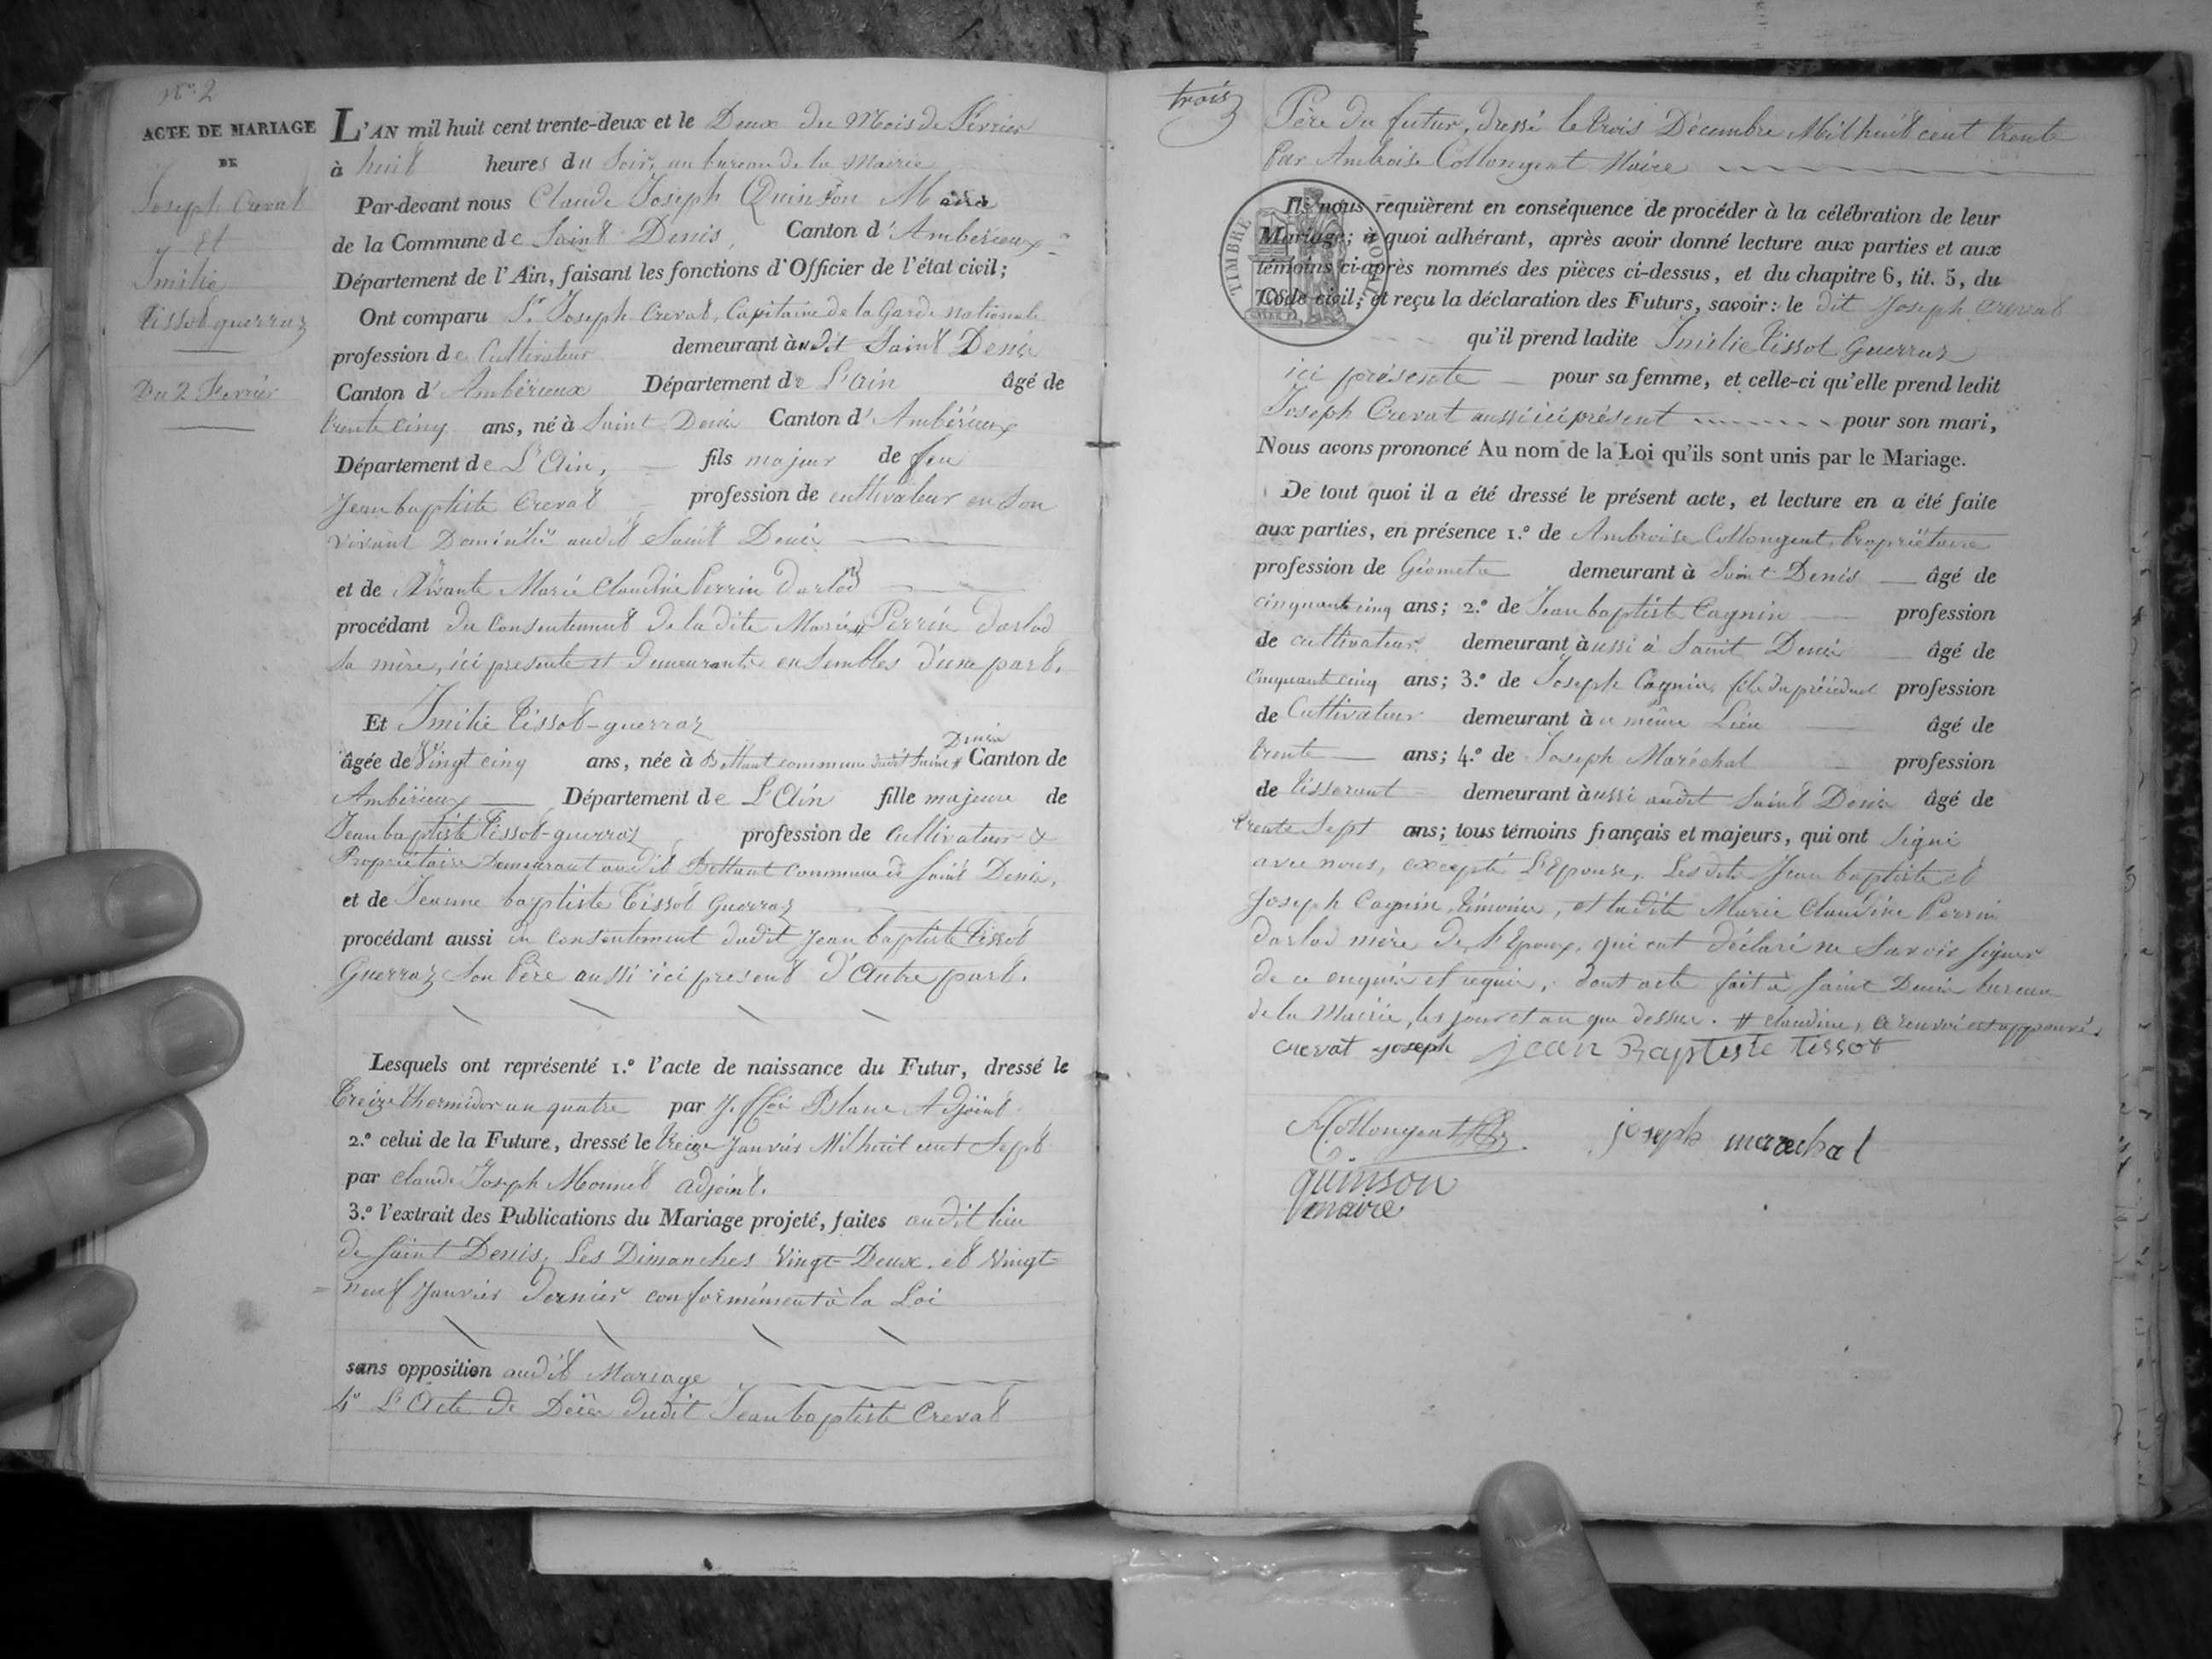 N.º 2
ACTE DE MARIAGE
DE
Joseph Crevat
Et
Imilie
Tissot guerraz
Du 2 Fevrier
L'AN mil huit cent trente-deux et le Deux du Mois de Février
à huit heures du Soir, au bureau de la Mairie
Par-devant nous Claude Joseph Quinson Maire
de la Commune de Saint Denis, Canton d'Ambérieux
Département de l'Ain, faisant les fonctions d'Officier de l'état civil;
Ont comparu Sr Joseph Crevat, Capitaine de la Garde nationale
profession de Cultivateur demeurant àudit Saint Denis
Canton d'Ambérieux Département de L'Ain âgé de
trente cinq ans, né à Saint Denis Canton d'Ambérieux
Département de L'Ain, fils majeur de feu
Jean baptiste Crevat profession de cultivateur en Son
vivant Domicilié audit Saint Denis
et de Vivante Marie Claudine Perrin Darlod
procédant du Consentement de la dite Marie # Perrin Darlod
Sa mère, ici presente et Demeurante ensembles d'une part.
Et Imilie Tissot-guerraz
âgée de Vingt cinq ans, née à Bettant commune dudit Saint Denis Canton de
Ambérieux Département de L'Ain fille majeure de
Jean baptiste Tissot-guerraz profession de Cultivateur &
Propriétaire Demeurant audit Bettant Commune de Saint Denis,
et de Jeanne baptiste Tissot Guerraz
procédant aussi du Consentement dudit Jean baptiste Tissot
Guerraz Son Père aussi ici present d'Autre part.
Lesquels ont représenté 1.º l'acte de naissance du Futur, dressé le
Treize thermidor an quatre par J. Blanc Adjoint
2.º celui de la Future, dressé le treize Janvier Mil huit cent Sept
par Claude Joseph Monnet adjoint.
3.º l'extrait des Publications du Mariage projeté, faites audit lieu
de Saint Denis, Les Dimanches Vingt-Deux et Vingt-
neuf Janvier Dernier conformément à la Loi
sans opposition audit Mariage
4º L'Acte de Décès dudit Jean baptiste Crevat
trois
Père du futur, dressé le trois Décembre Mil huit cent trente
par Ambroise Collongeat Maire
TIMBRE ROYAL
Ils nous requièrent en conséquence de procéder à la célébration de leur
Mariage; à quoi adhérant, après avoir donné lecture aux parties et aux
témoins ci-après nommés des pièces ci-dessus, et du chapitre 6, tit. 5, du
Code civil; et reçu la déclaration des Futurs, savoir: le dit Joseph Crevat
qu'il prend ladite Imilie Tissot Guerraz
ici présente pour sa femme, et celle-ci qu'elle prend ledit
Joseph Crevat aussi ici présent pour son mari,
Nous avons prononcé Au nom de la Loi qu'ils sont unis par le Mariage.
De tout quoi il a été dressé le présent acte, et lecture en a été faite
aux parties, en présence 1.º de Ambroise Collongeat, Propriétaire
profession de Géometre demeurant à Saint Denis âgé de
cinquante cinq ans; 2.º de Jean baptiste Cagnin profession
de cultivateur demeurant àussi à Saint Denis âgé de
Cinquante cinq ans; 3.º de Joseph Cagnin, fils du précédent profession
de Cultivateur demeurant àu même Lieu âgé de
trente ans; 4.º de Joseph Maréchal profession
de tisserant demeurant àussi audit Saint Denis âgé de
trente Sept ans; tous témoins français et majeurs, qui ont Signé
avec nous, excepté L'Epouse, Lesdits Jean baptiste et
Joseph Cagnin témoins, et ladite Marie Claudine Perrin
Darlod mère de l'Epoux, qui ont déclaré ne Savoir signer
de ce enquis et requis, dont acte fait à Saint Denis bureau
de la Mairie, les jour et an que dessus. # Claudine, ce renvoi est approuvé.
crevat joseph jean Baptiste tissot
Collongeat joseph marechal
quinson
maire